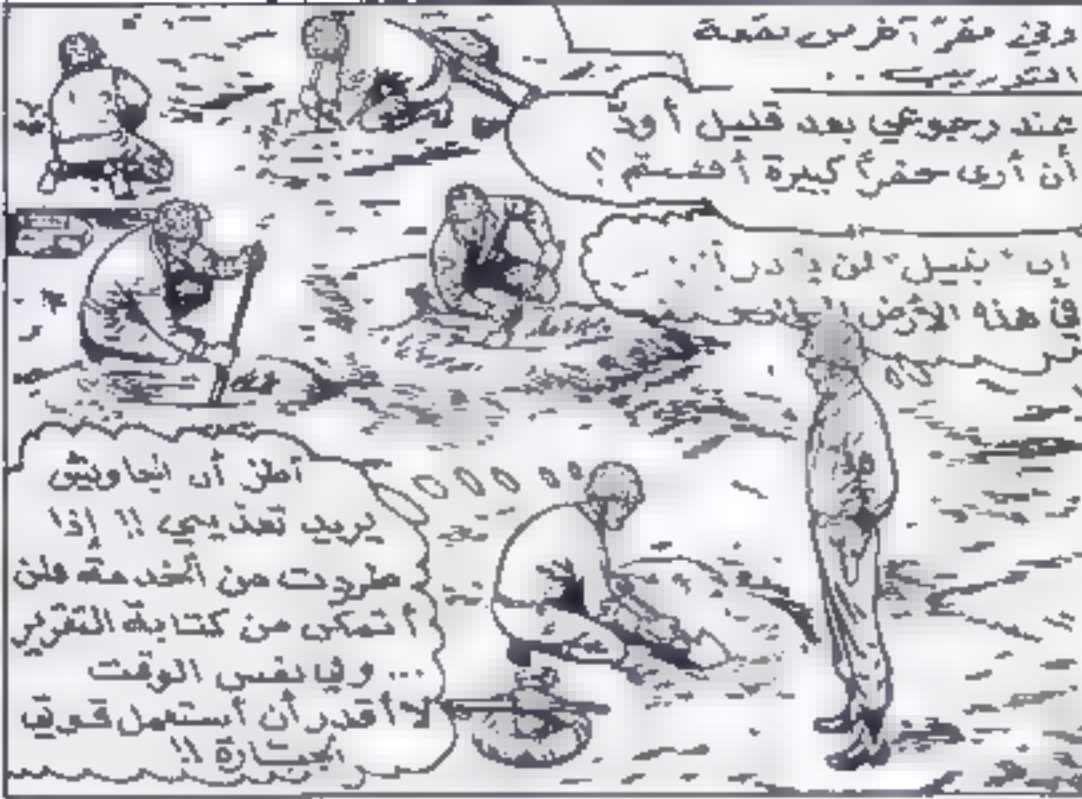 وفي مقرّ آخر من بقعة
التدريب...
عند رجوعي بعد قليل أودّ
أن أرى حفراً كبيرة أفهمتم ؟
إن "نبيل" لن يـ
في هذه الأرض
أظن أن الجاويش
يريد تعذيبي !! إذا
طردت من الخدمة فلن
أتمكن من كتابة التقرير
... وفي نفس الوقت
لا أقدر أن أستعمل قوتي
الجبارة !!